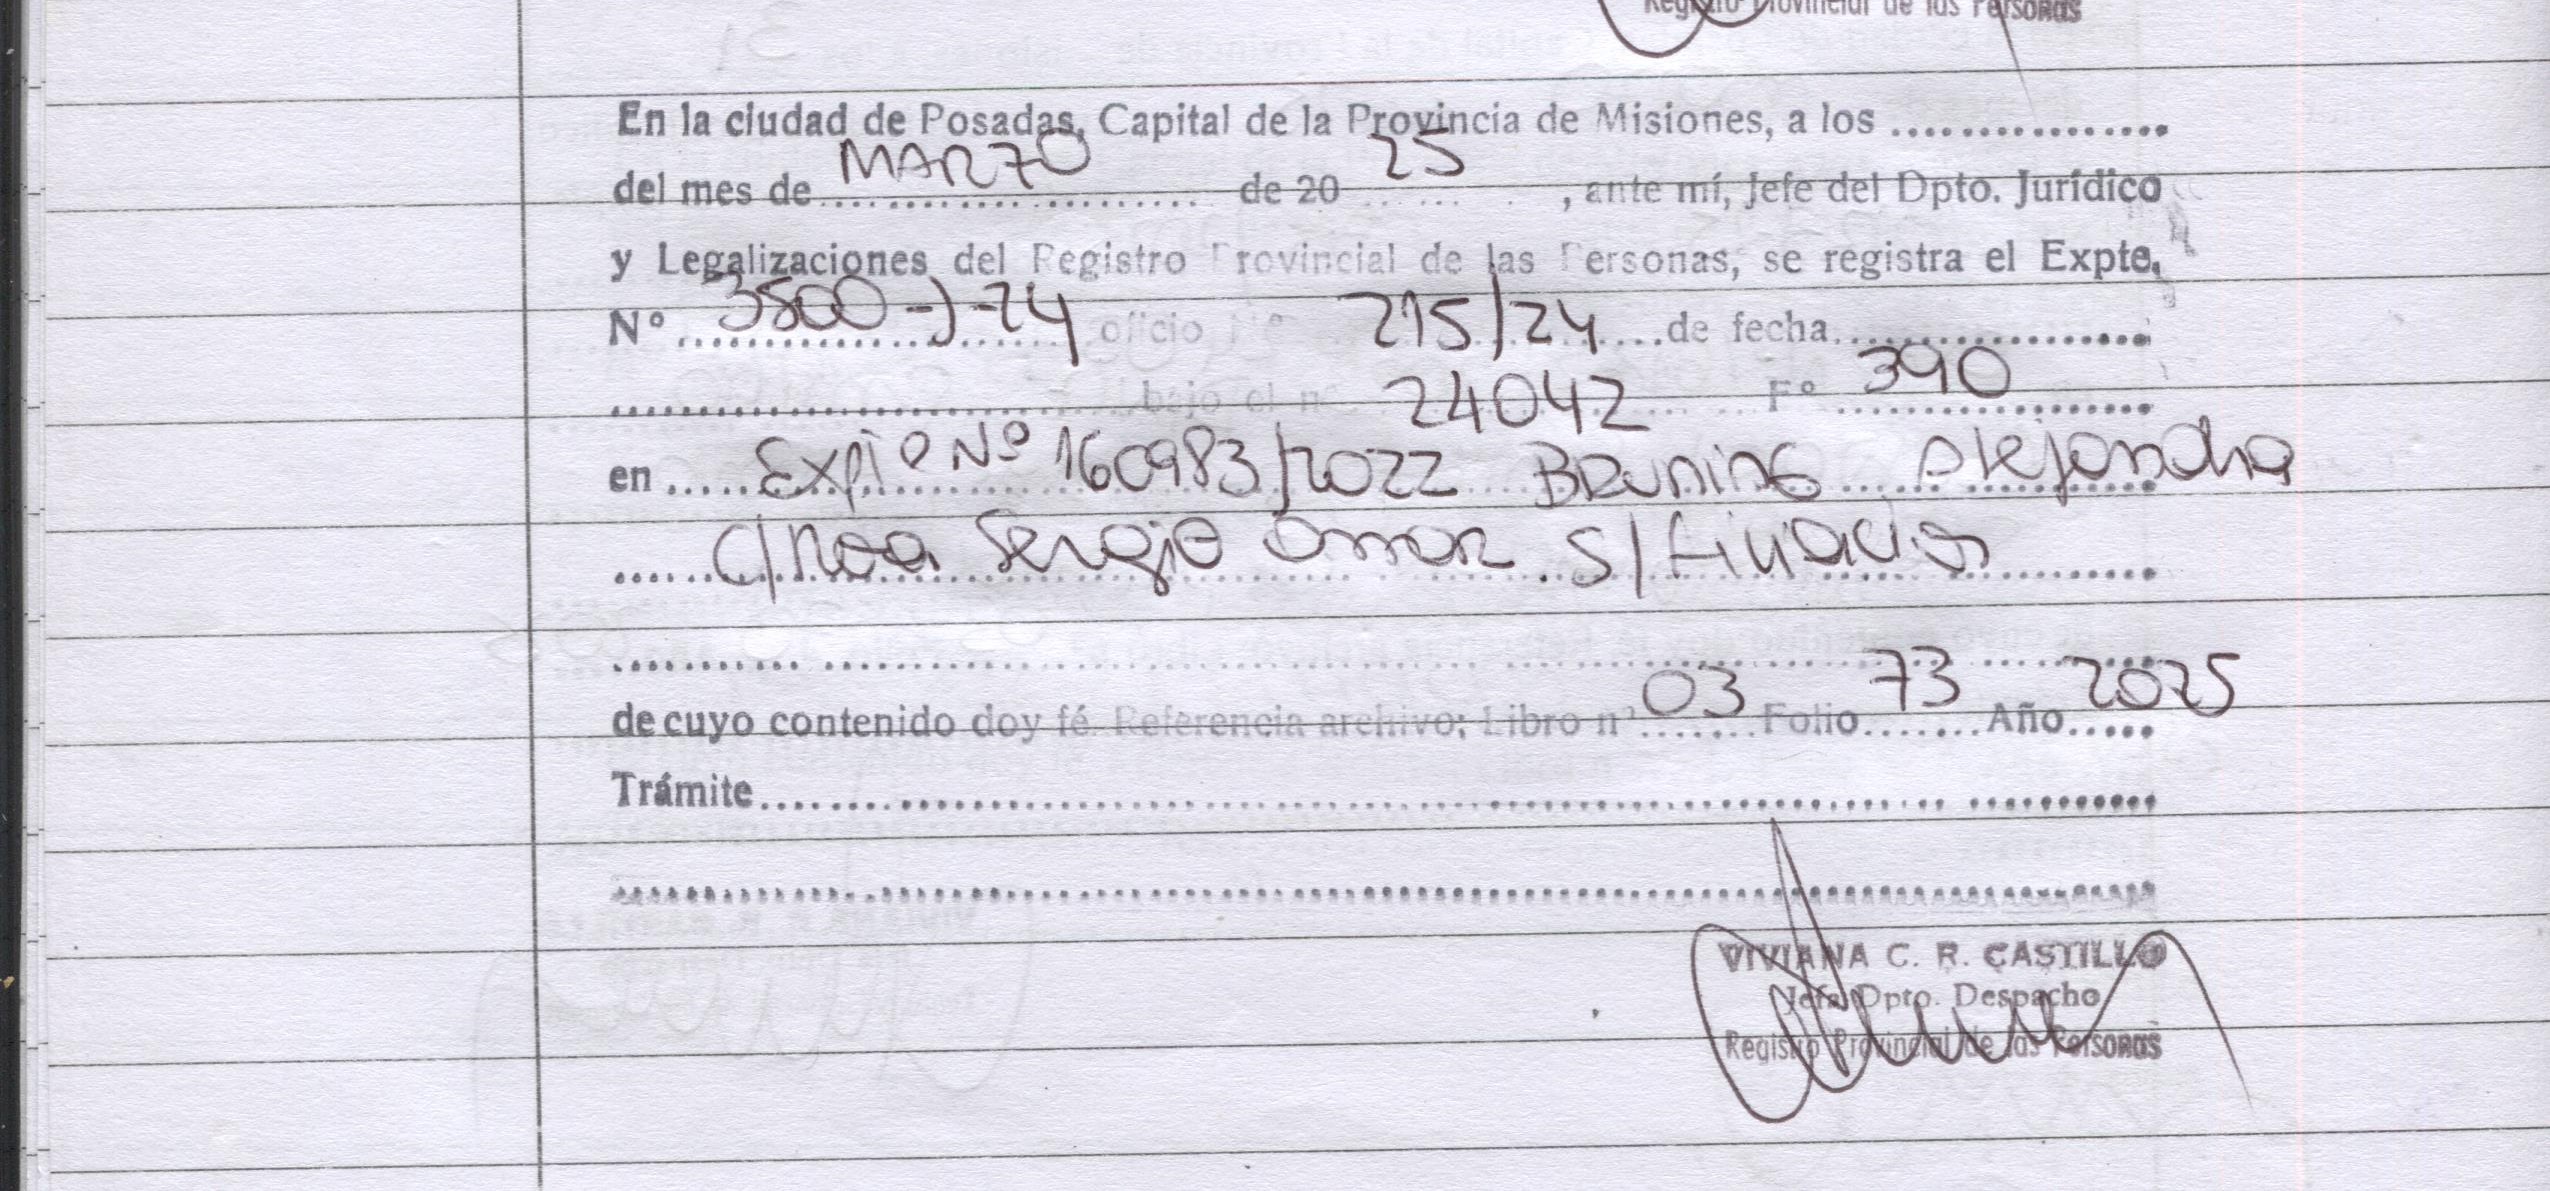 Registro Provincial de las Personas
En la ciudad de Posadas, Capital de la Provincia de Misiones, a los ................
del mes de MARZO de 20 25, ante mí, Jefe del Dpto. Jurídico
y Legalizaciones del Registro Provincial de las Personas, se registra el Expte.
Nº 3500-J-24 oficio Nº 215/24 de fecha..................
bajo el nº 24042 Fº 390
en Expte Nº 160983/2022 BRUNING Alejandra
c/ Noa Sergio Omar s/ Filiación
de cuyo contenido doy fé. Referencia archivo: Libro nº 03 Folio 73 Año 2025
Trámite..................
VIVIANA C. R. CASTILLO
Jefa Dpto. Despacho
Registro Provincial de las Personas